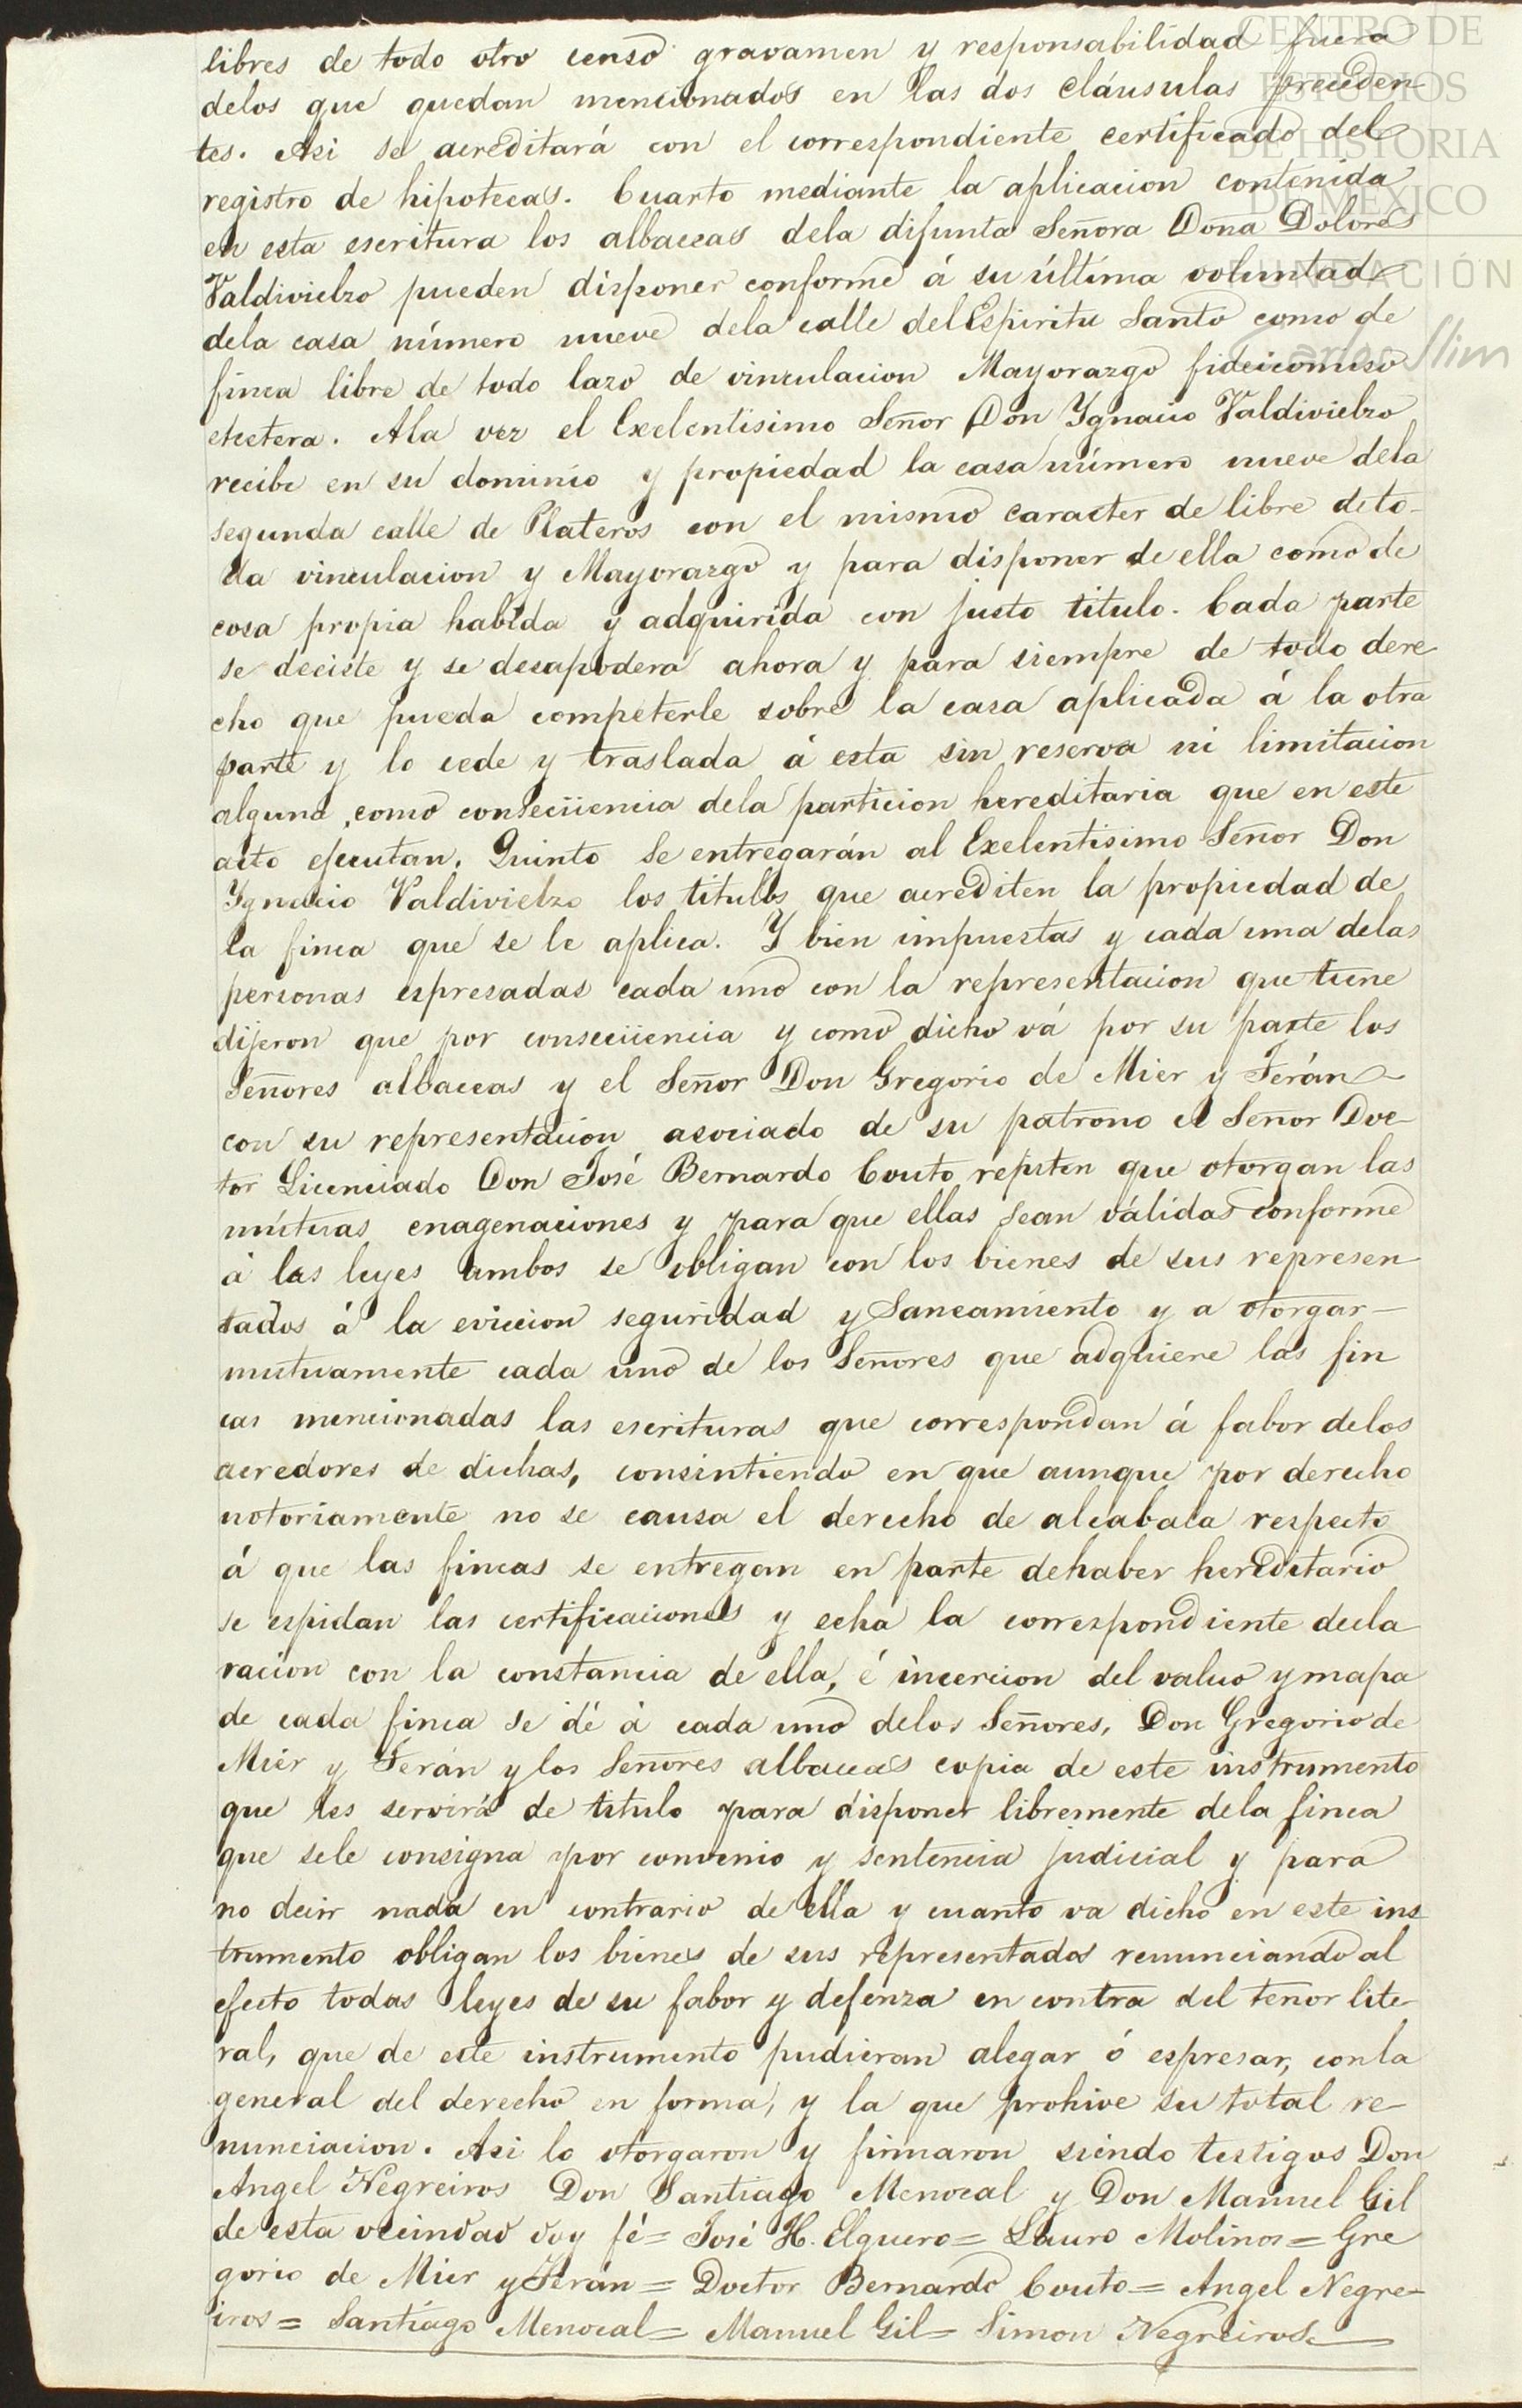 CENTRO DE
ESTUDIOS
DE HISTORIA
DE MÉXICO
FUNDACIÓN
Carlos Slim
libres de todo otro censo gravamen y responsabilidad fuera
delos que quedan mencionados en las dos cláusulas preceden
tes. Asi se acreditará con el correspondiente certificado del
registro de hipotecas. Cuarto mediante la aplicacion contenida
en esta escritura los albaceas dela difunta Señora Doña Dolores
Valdivielzo pueden disponer conforme á su última voluntad
dela casa número nueve dela calle del Espiritu Santo como de
finca libre de todo lazo de vinculacion Mayorazgo fideicomiso
etcetera. Ala vez el Exelentisimo Señor Don Ygnacio Valdivielzo
recibe en su dominio y propiedad la casa número nueve dela
segunda calle de Plateros con el mismo caracter de libre de to-
da vinculacion y Mayorazgo y para disponer de ella como de
cosa propia habida y adquirida con justo titulo. Cada parte
se deciste y se desapodera ahora y para siempre de todo dere
cho que pueda competerle sobre la casa aplicada á la otra
parte y lo cede y traslada á esta sin reserva ni limitacion
alguna, como consecüencia dela particion hereditaria que en este
acto ejecutan. Quinto Se entregarán al Exelentisimo Señor Don
Ygnacio Valdivielzo los titulos que acrediten la propiedad de
la finca que se le aplica. Y bien impuestas y cada una delas
personas espresadas cada uno con la representacion que tiene
dijeron que por consecüencia y como dicho vá por su parte los
Señores albaceas y el Señor Don Gregorio de Mier y Terán
con su representacion asociado de su patrono el Señor Doc-
tor Licenciado Don José Bernardo Couto repiten que otorgan las
mútuas enagenaciones y para que ellas sean válidas conforme
á las leyes ambos se obligan con los bienes de sus represen
tados á la eviccion seguridad y Saneamiento y a otorgar-
mutuamente cada uno de los Señores que adquiere las fin
cas mencionadas las escrituras que correspondan á fabor delos
acredores de dichas, consintiendo en que aunque por derecho
notoriamente no se causa el derecho de alcabala respecto
á que las fincas se entregan en parte dehaber hereditario
se espidan las certificaciones y echa la correspondiente decla
racion con la constancia de ella, é incercion del valuo y mapa
de cada finca se dé á cada uno delos Señores, Don Gregorio de
Mier y Terán y los Señores albaceas copia de este instrumento
que les servirá de titulo para disponer libremente dela finca
que sele consigna por convenio y sentencia judicial y para
no decir nada en contrario de ella y cuanto va dicho en este ins
trumento obligan los bienes de sus representados renunciando al
efecto todas leyes de su fabor y defenza en contra del tenor lite
ral, que de este instrumento pudieran alegar ó espresar, con la
general del derecho en forma, y la que prohive su total re-
nunciacion. Asi lo otorgaron y firmaron siendo testigos Don
Angel Negreiros Don Santiago Menocal y Don Manuel Gil
de esta vecindad doy fé= José H. Elguero= Lauro Molinos= Gre
gorio de Mier y Terán= Doctor Bernardo Couto= Angel Negre-
iros= Santiago Menocal= Manuel Gil= Simon Negreiros.